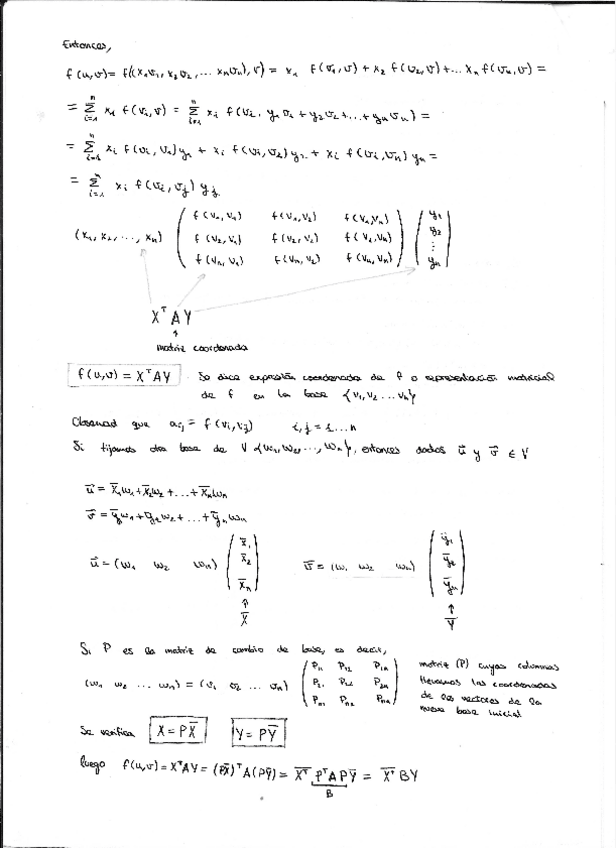 Entonces,
f(u,v) = f((x₁v₁, x₂v₂, ... xₙvₙ), v) = x₁ f(v₁,v) + x₂ f(v₂,v) + ... xₙ f(vₙ,v) =
= Σ_{i=1}^{n} x₁ f(vᵢ,v) = Σ_{i=1}^{n} xᵢ f(vᵢ, y₁v₁ + y₂v₂ + ... + yₙvₙ) =
= Σ_{i=1}^{n} xᵢ f(vᵢ,v₁)y₁ + xᵢ f(vᵢ,v₂)y₂ + xᵢ f(vᵢ,vₙ)yₙ =
= Σ_{i=1}^{n} xᵢ f(vᵢ,vⱼ) yⱼ
f(v₁,v₁) f(v₁,v₂) f(v₁,vₙ) y₁
(x₁, x₂, ..., xₙ) f(v₂,v₁) f(v₂,v₂) f(v₂,vₙ) y₂
⋮
f(vₙ,v₁) f(vₙ,v₂) f(vₙ,vₙ) yₙ
XᵀAY
↑
matriz coordenada
f(u,v) = XᵀAY Se dice expresión coordenada de f o representación matricial
de f en la base {v₁,v₂ ... vₙ}
Observad que aᵢⱼ = f(vᵢ,vⱼ) i,j = 1...n
Si fijamos otra base de V {w₁,w₂,...,wₙ}, entonces dados u⃗ y v⃗ ∈ V
u⃗ = x̄₁w₁ + x̄₂w₂ + ... + x̄ₙwₙ
v⃗ = ȳ₁w₁ + ȳ₂w₂ + ... + ȳₙwₙ
x̄₁ ȳ₁
u⃗ = (w₁ w₂ wₙ) x̄₂ v⃗ = (w₁ w₂ wₙ) ȳ₂
x̄ₙ ȳₙ
↑ ↑
X̄ Ȳ
Si P es la matriz de cambio de base, es decir,
P₁₁ P₁₂ P₁ₙ matriz (P) cuyas columnas
(w₁ w₂ ... wₙ) = (v₁ v₂ ... vₙ) P₂₁ P₂₂ P₂ₙ llevamos las coordenadas
Pₙ₁ Pₙ₂ Pₙₙ de los vectores de la
nueva base inicial
Se verifica X = PX̄ Y = PȲ
luego f(u,v) = XᵀAY = (PX̄)ᵀA(PȲ) = X̄ᵀ PᵀAP Ȳ = X̄ᵀ BY
B